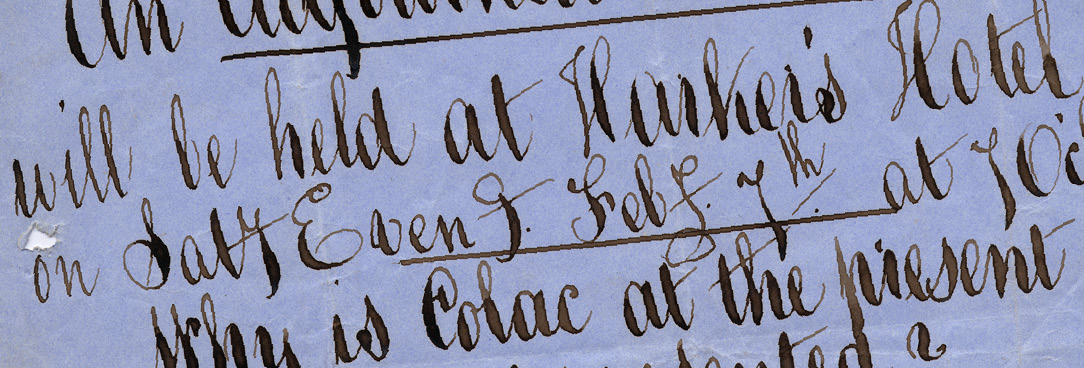 An
will be held at Harker's Hotel
on Saty Eveng. Feby. 7th. at 7 O'c
Why is Colac at the present